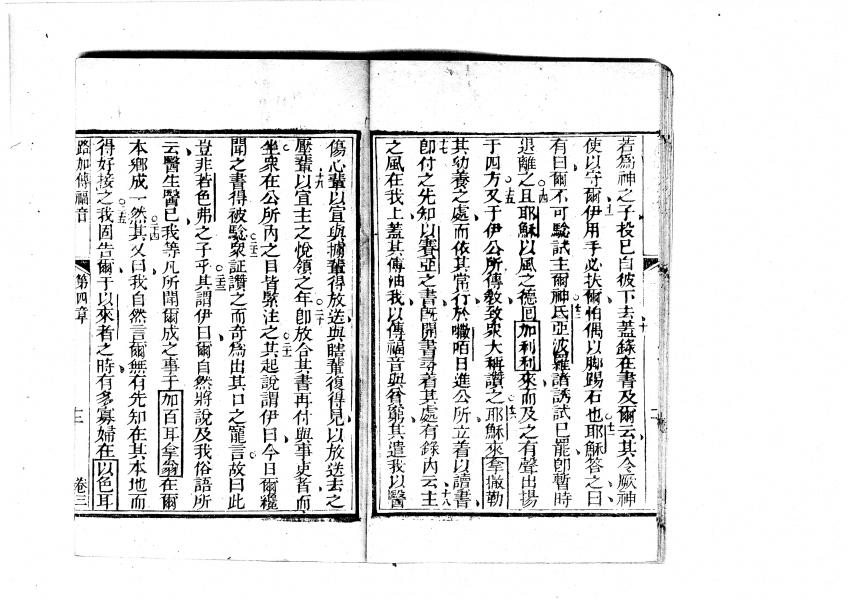 若為神之子投已自彼下去蓋錄在書及爾云其令厥神
十一
使以守爾伊用手必扶爾怕偶以脚踢石也耶穌答之曰
十二
有曰爾不可驗試主爾神氏亞波羅諸誘試已罷卽暫時
十三
退離之且耶穌以風之德回加利利來而及之有聲出揚
十四
于四方又于伊公所傳教致眾大稱讚之耶穌來拿撒勒
十五
十六
其幼養之處而依其常行於嚫咟日進公所立著以讀書
卽付之先知以賽亞之書旣開書尋着其處有錄內云主
十七
十八
之風在我上蓋其傅油我以傳福音與貧窮其遣我以醫
傷心輩以宣與擄輩得放送與瞎輩復得見以放送去之
十九
壓輩以宣主之悅領之年卽放合其書再付與事吏者而
二十
坐眾在公所內之目皆緊注之其起說謂伊曰今日爾纔
二十一
聞之書得被驗眾証讚之而奇為出其口之寵言故曰此
二十二
豈非若色弗之子乎其謂伊曰爾自然將說及我俗語所
二十三
云醫生醫已我等凡所聞爾成之事于加百耳拿翁在爾
本鄉成一然其又曰我自然言爾無有先知在其本地而
二十四
得好接之我固告爾于以來者之時有多寡婦在以色耳
二十五
路加傳福音
第四章
卷三